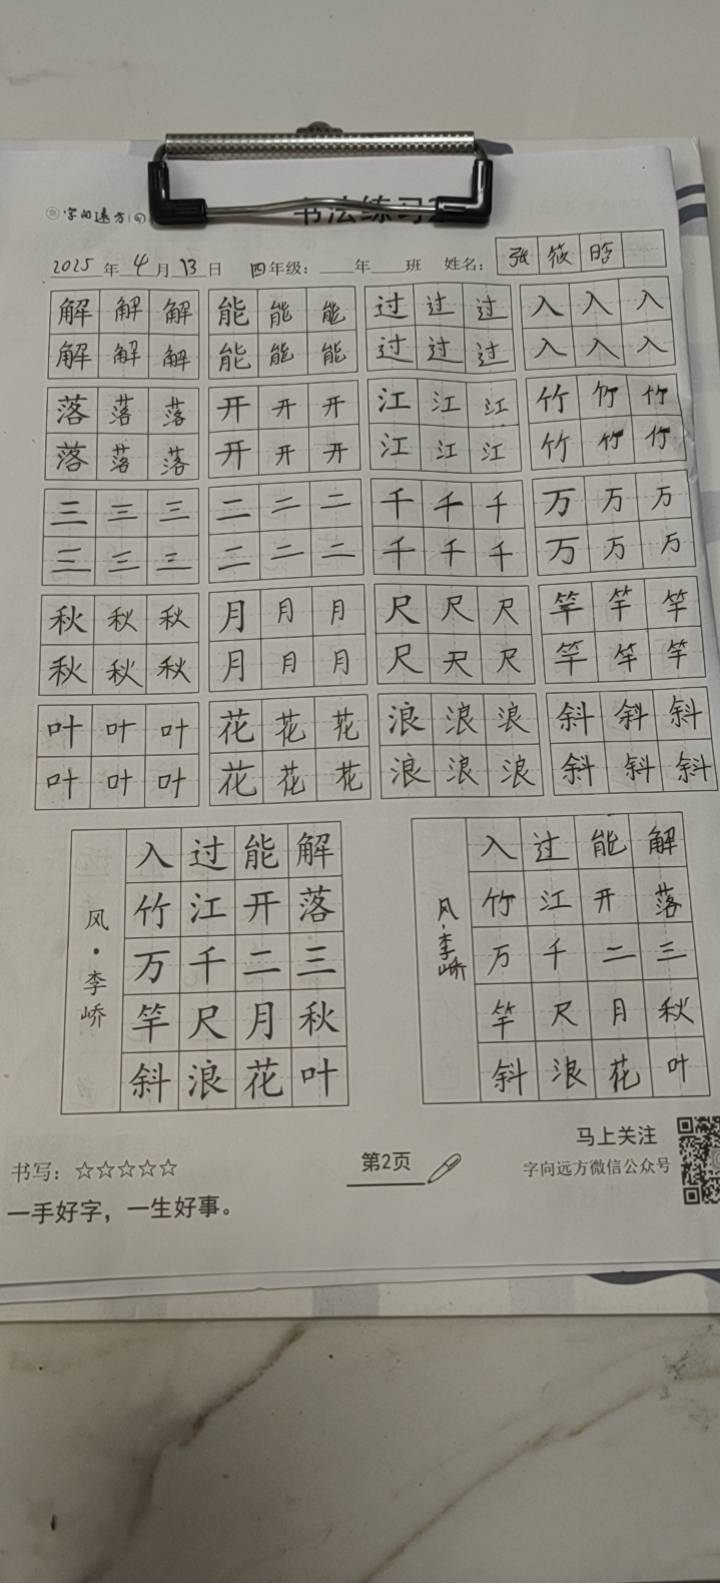 字向远方
书法练习
2025年4月13日 四年级：年班 姓名：张筱晗
解解解 能能能 过过过 入入入
解解解 能能能 过过过 入入入
落落落 开开开 江江江 竹竹竹
落落落 开开开 江江江 竹竹竹
三三三 二二二 千千千 万万万
三三三 二二二 千千千 万万万
秋秋秋 月月月 尺尺尺 竿竿竿
秋秋秋 月月月 尺尺尺 竿竿竿
叶叶叶 花花花 浪浪浪 斜斜斜
叶叶叶 花花花 浪浪浪 斜斜斜
解落三秋叶
能开二月花
过江千尺浪
入竹万竿斜
风·李峤
解落三秋叶
能开二月花
过江千尺浪
入竹万竿斜
风·李峤
书写：☆☆☆☆☆
一手好字，一生好事。
第2页
马上关注
字向远方微信公众号